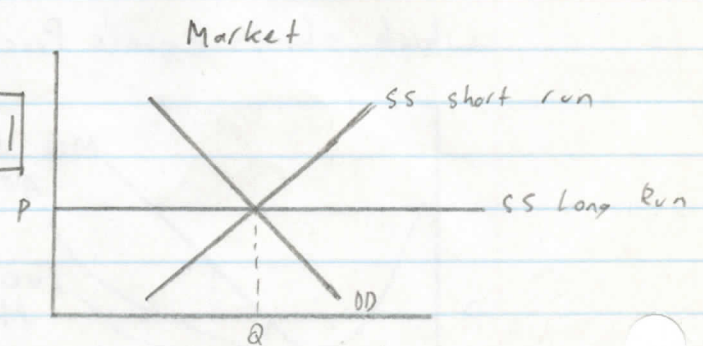 Market
SS short run
P
SS Long Run
DD
Q